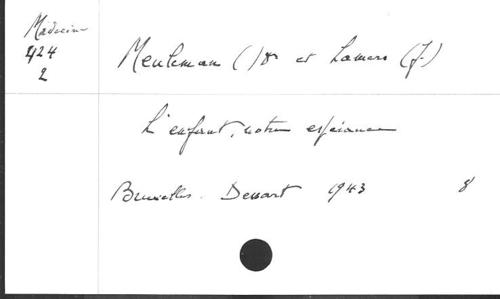 Médecine
424
2
Meuleman () Dr et Lamers (J.)
L'enfant, notre espérance
Bruxelles. Dessart 1943 8